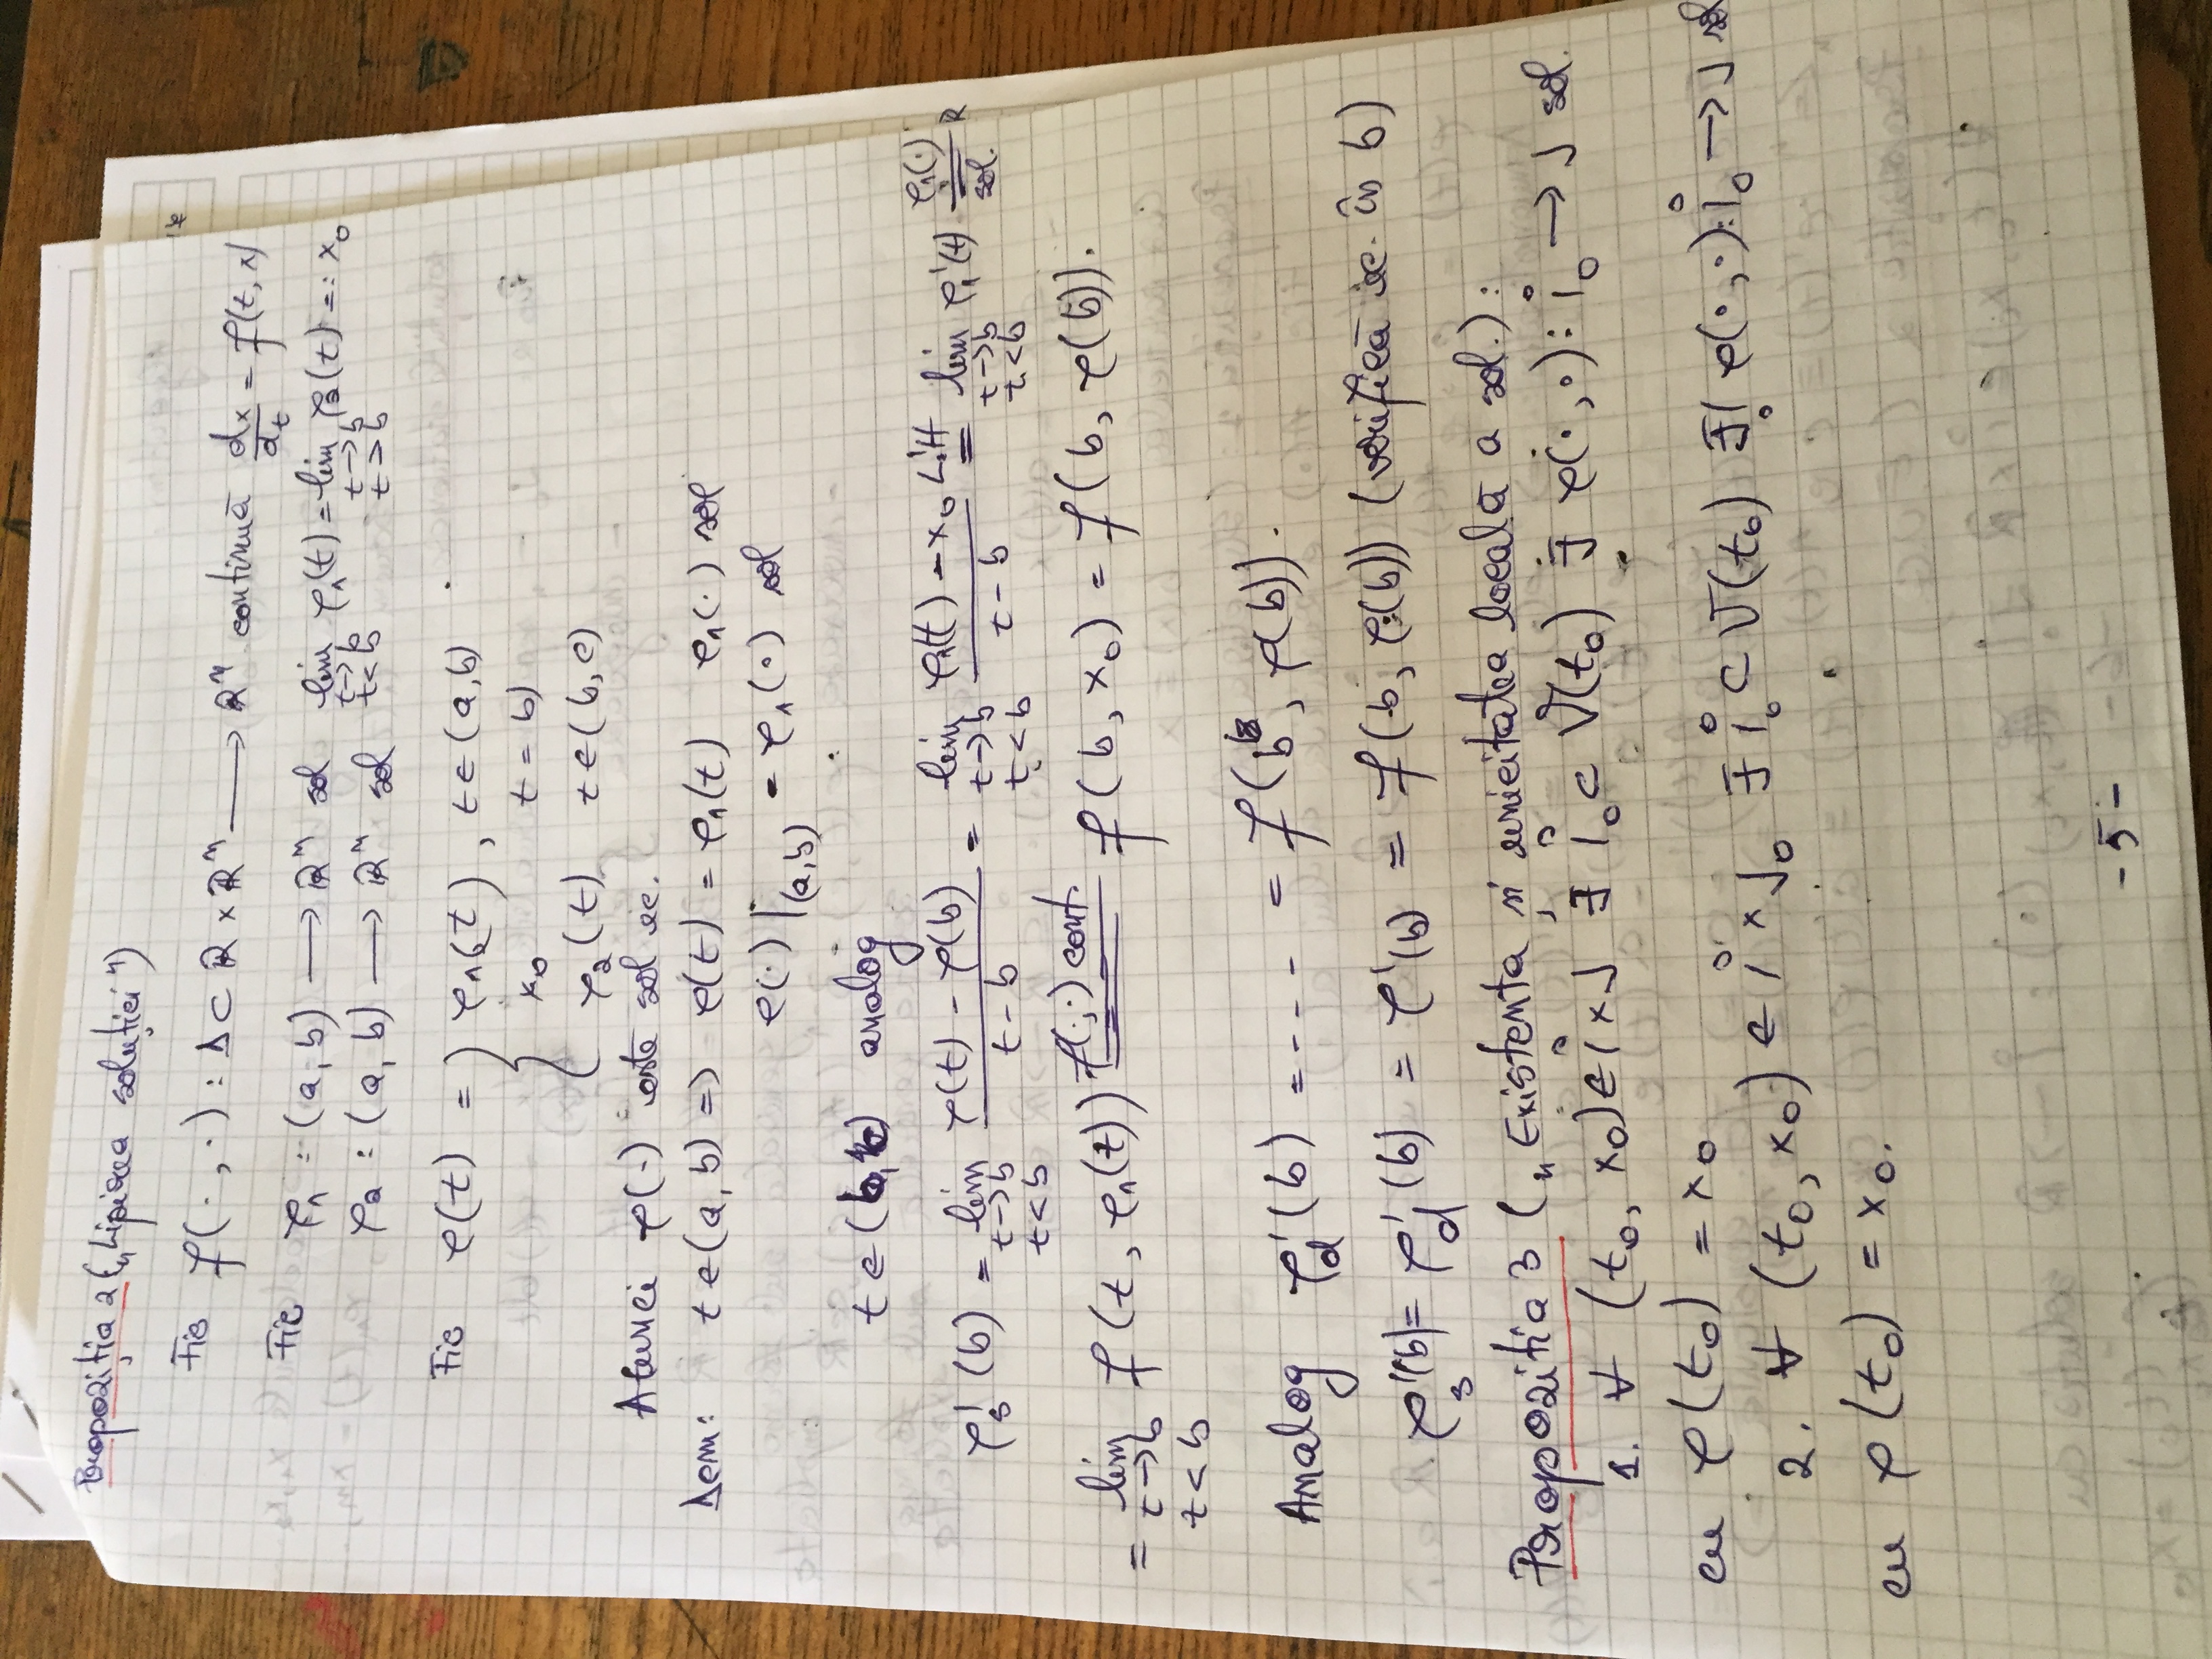 Propoziția 2 („Lipirea soluției")
Fie f(·,·) : Δ ⊂ ℝ × ℝⁿ ⟶ ℝⁿ continuă dx/dt = f(t, x)
Fie φ₁ : (a, b) ⟶ ℝⁿ sol lim_{t→b, t<b} φ₁(t) = lim_{t→b, t>b} φ₂(t) =: x₀
φ₂ : (a, b) ⟶ ℝⁿ sol
Fie φ(t) = { φ₁(t), t∈(a,b)
x₀ t = b)
φ₂(t) t∈(b,c)
Atunci φ(·) este sol ec.
Dem: t∈(a,b) => φ(t) = φ₁(t) φ₁(·) sol
φ(·)|_(a,b) = φ₁(·) sol
t∈(b,c) analog
φ's(b) = lim_{t→b, t<b} (φ(t) - φ(b))/(t-b) = lim_{t→b, t<b} (φ₁(t) - x₀)/(t-b) =^{L'H} lim_{t→b, t<b} φ₁'(t) =^{φ₁(·)}_{sol.}
= lim_{t→b, t<b} f(t, φ₁(t)) =^{f(·,·) cont.} f(b, x₀) = f(b, φ(b)).
Analog φ'd(b) = ---- = f(b, φ(b)).
φ's(b) = φ'd(b) = φ'(b) = f(b, φ(b)) (verifică ec. în b)
Propozitia 3 („Existenta și unicitatea locală a sol.):
1. ∀ (t₀, x₀) ∈ I × J ∃ I₀ ⊂ V(t₀) ∃ φ(·,·) : I₀ → J sol.
cu φ(t₀) = x₀
2. ∀ (t₀, x₀) ∈ I × J₀ ∃ I₀ ⊂ V(t₀) ∃! φ(·,·) : I₀ → J sol
cu φ(t₀) = x₀.
-5-